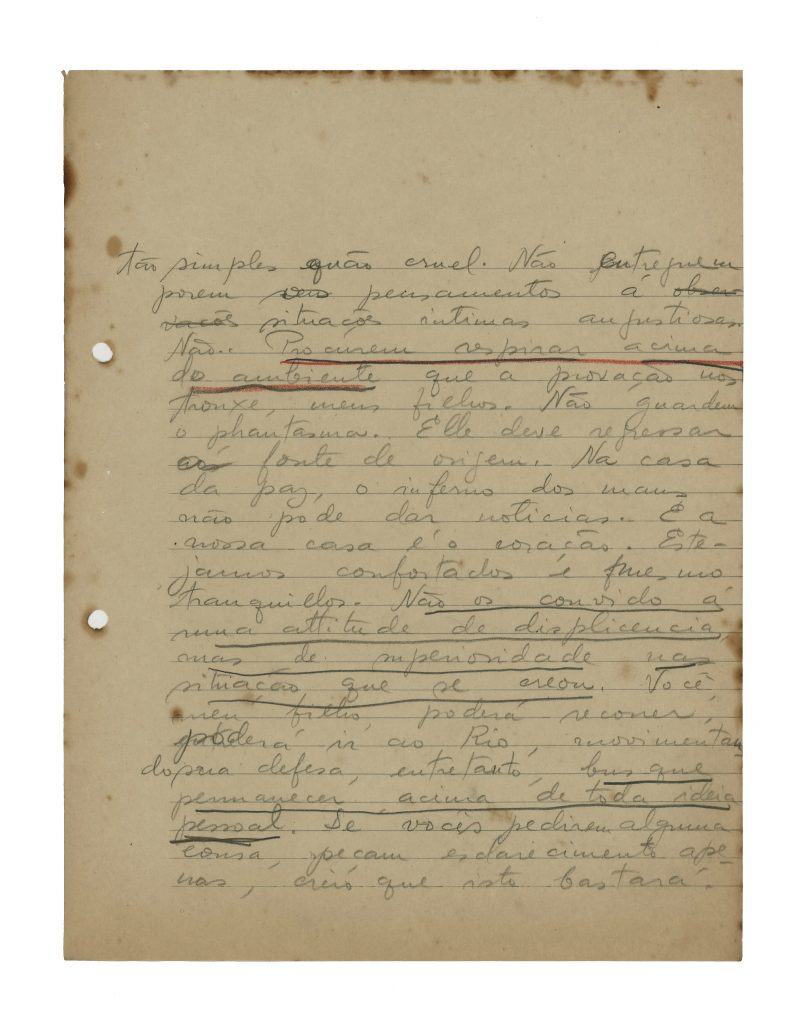 tão simples quão cruel. Não entreguem
porem seus pensamentos á obser-
vacões situações intimas angustiosas.
Não.. Procurem respirar acima
do ambiente que a provação nos
trouxe, meus filhos. Não guardem
o phantasma. Elle deve regressar
aos fonte de origem. Na casa
da paz, o inferno dos maus
não pode dar noticias. E a
nossa casa é o coração. Este-
jamos confortados e mesmo
tranquillos. Não os convido á
uma attitude de displicencia
mas de superiosidade nas
situação que se creou. Você,
meu filho, poderá recorrer,
poderá ir ao Rio, movimentan-
do sua defesa, entretanto, busque
permanecer acima de toda ideia
pessoal. Se vocês pedirem alguma
cousa, peçam esclarecimento ape-
nas, creio que isto bastará.